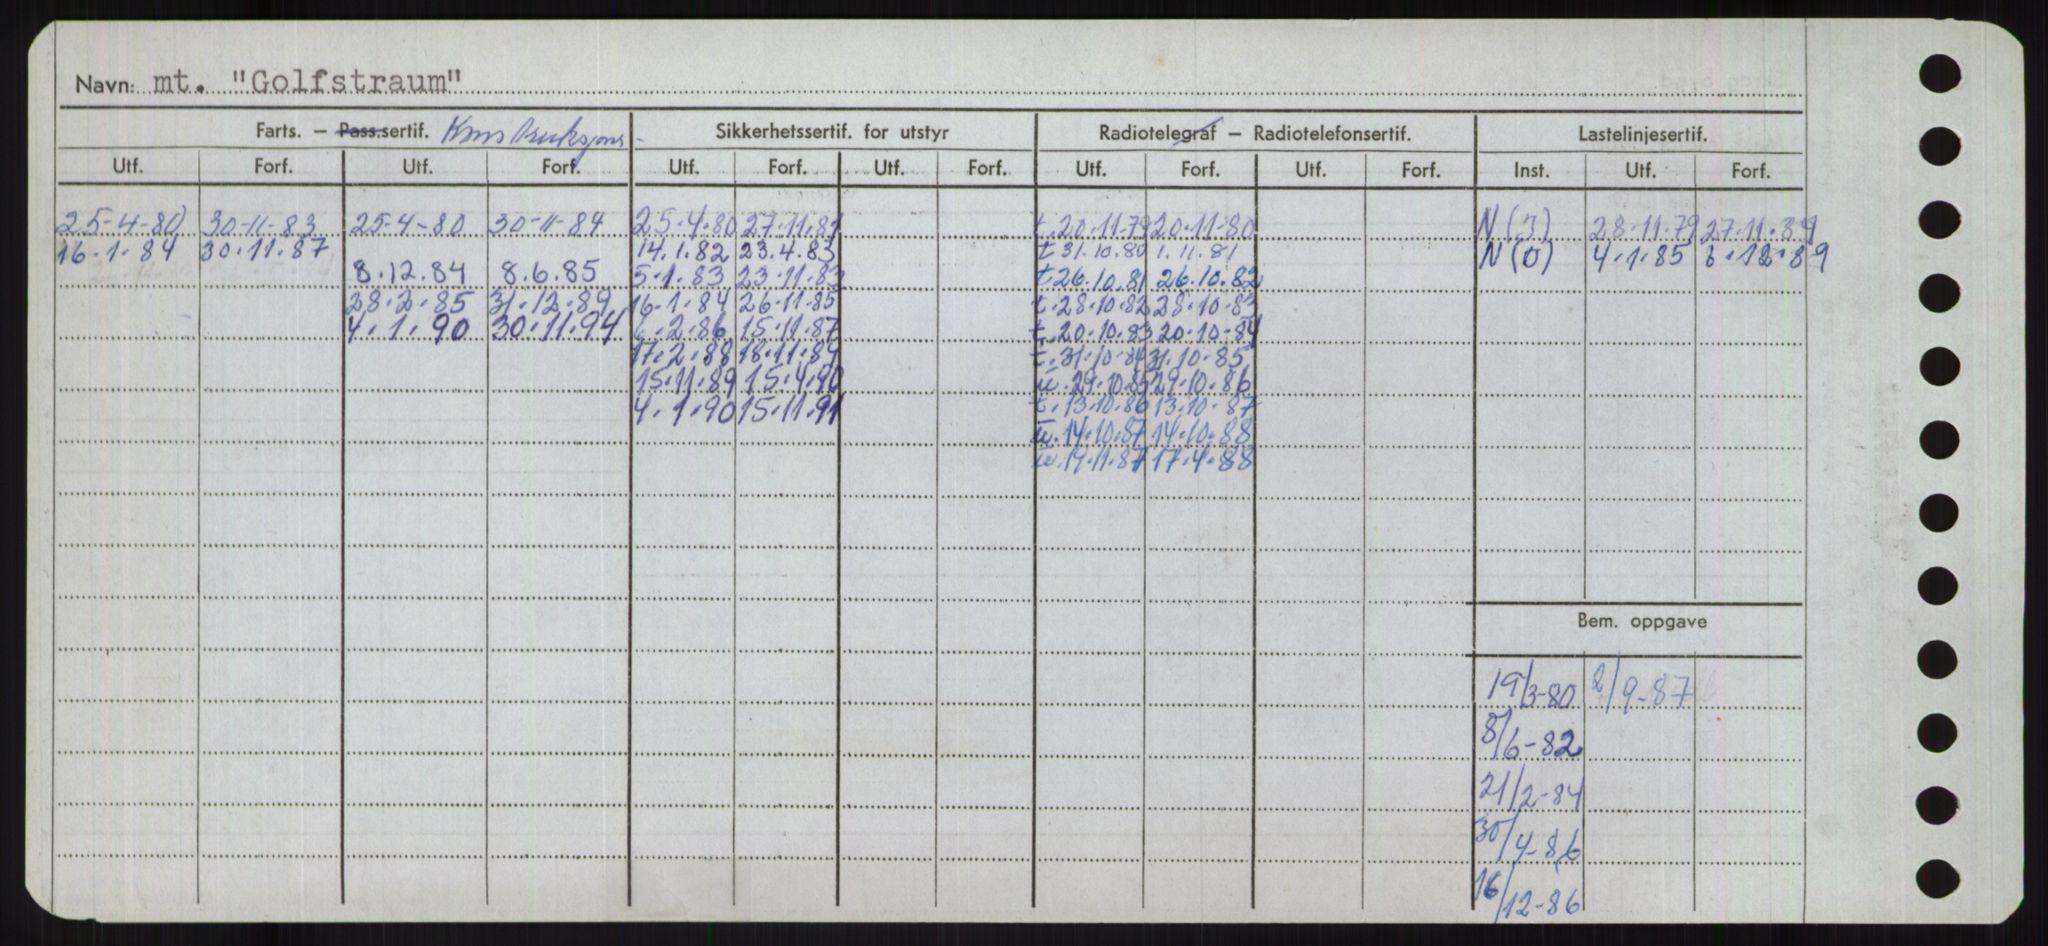 Navn: mt. "Golfstraum"
Farts. – Pass.sertif. Konstruksjons- Sikkerhetssertif. for utstyr Radiotelegraf – Radiotelefonsertif. Lastelinjesertif.
Utf. Forf. Utf. Forf. Utf. Forf. Utf. Forf. Utf. Forf. Utf. Forf. Inst. Utf. Forf.
25-4-80 30-11-83 25-4-80 30-11-84 25.4.80 27.11.81 t. 20.11.79 20.11.80 N (3) 28.11.79 27.11.84
16.1.84 30.11.87 14.1.82 23.4.83 t. 31.10.80 1.11.81 N (0) 4.1.85 6.12.89
8.12.84 8.6.85 5.1.83 23.11.83 t. 26.10.81 26.10.82
28.2.85 31.12.89 16.1.84 26.11.85 t. 28.10.82 28.10.83
4.1.90 30.11.94 6.2.86 15.11.87 t. 20.10.83 20.10.84
17.2.88 18.11.89 t. 31.10.84 31.10.85
15.11.89 15.4.90 29.10.85 29.10.86
4.1.90 15.11.91 t. 13.10.86 13.10.87
14.10.87 14.10.88
17.11.87 17.4.88
Bem. oppgave
19/3-80 2/9-87
8/6-82
21/2-84
30/4-86
16/12-86